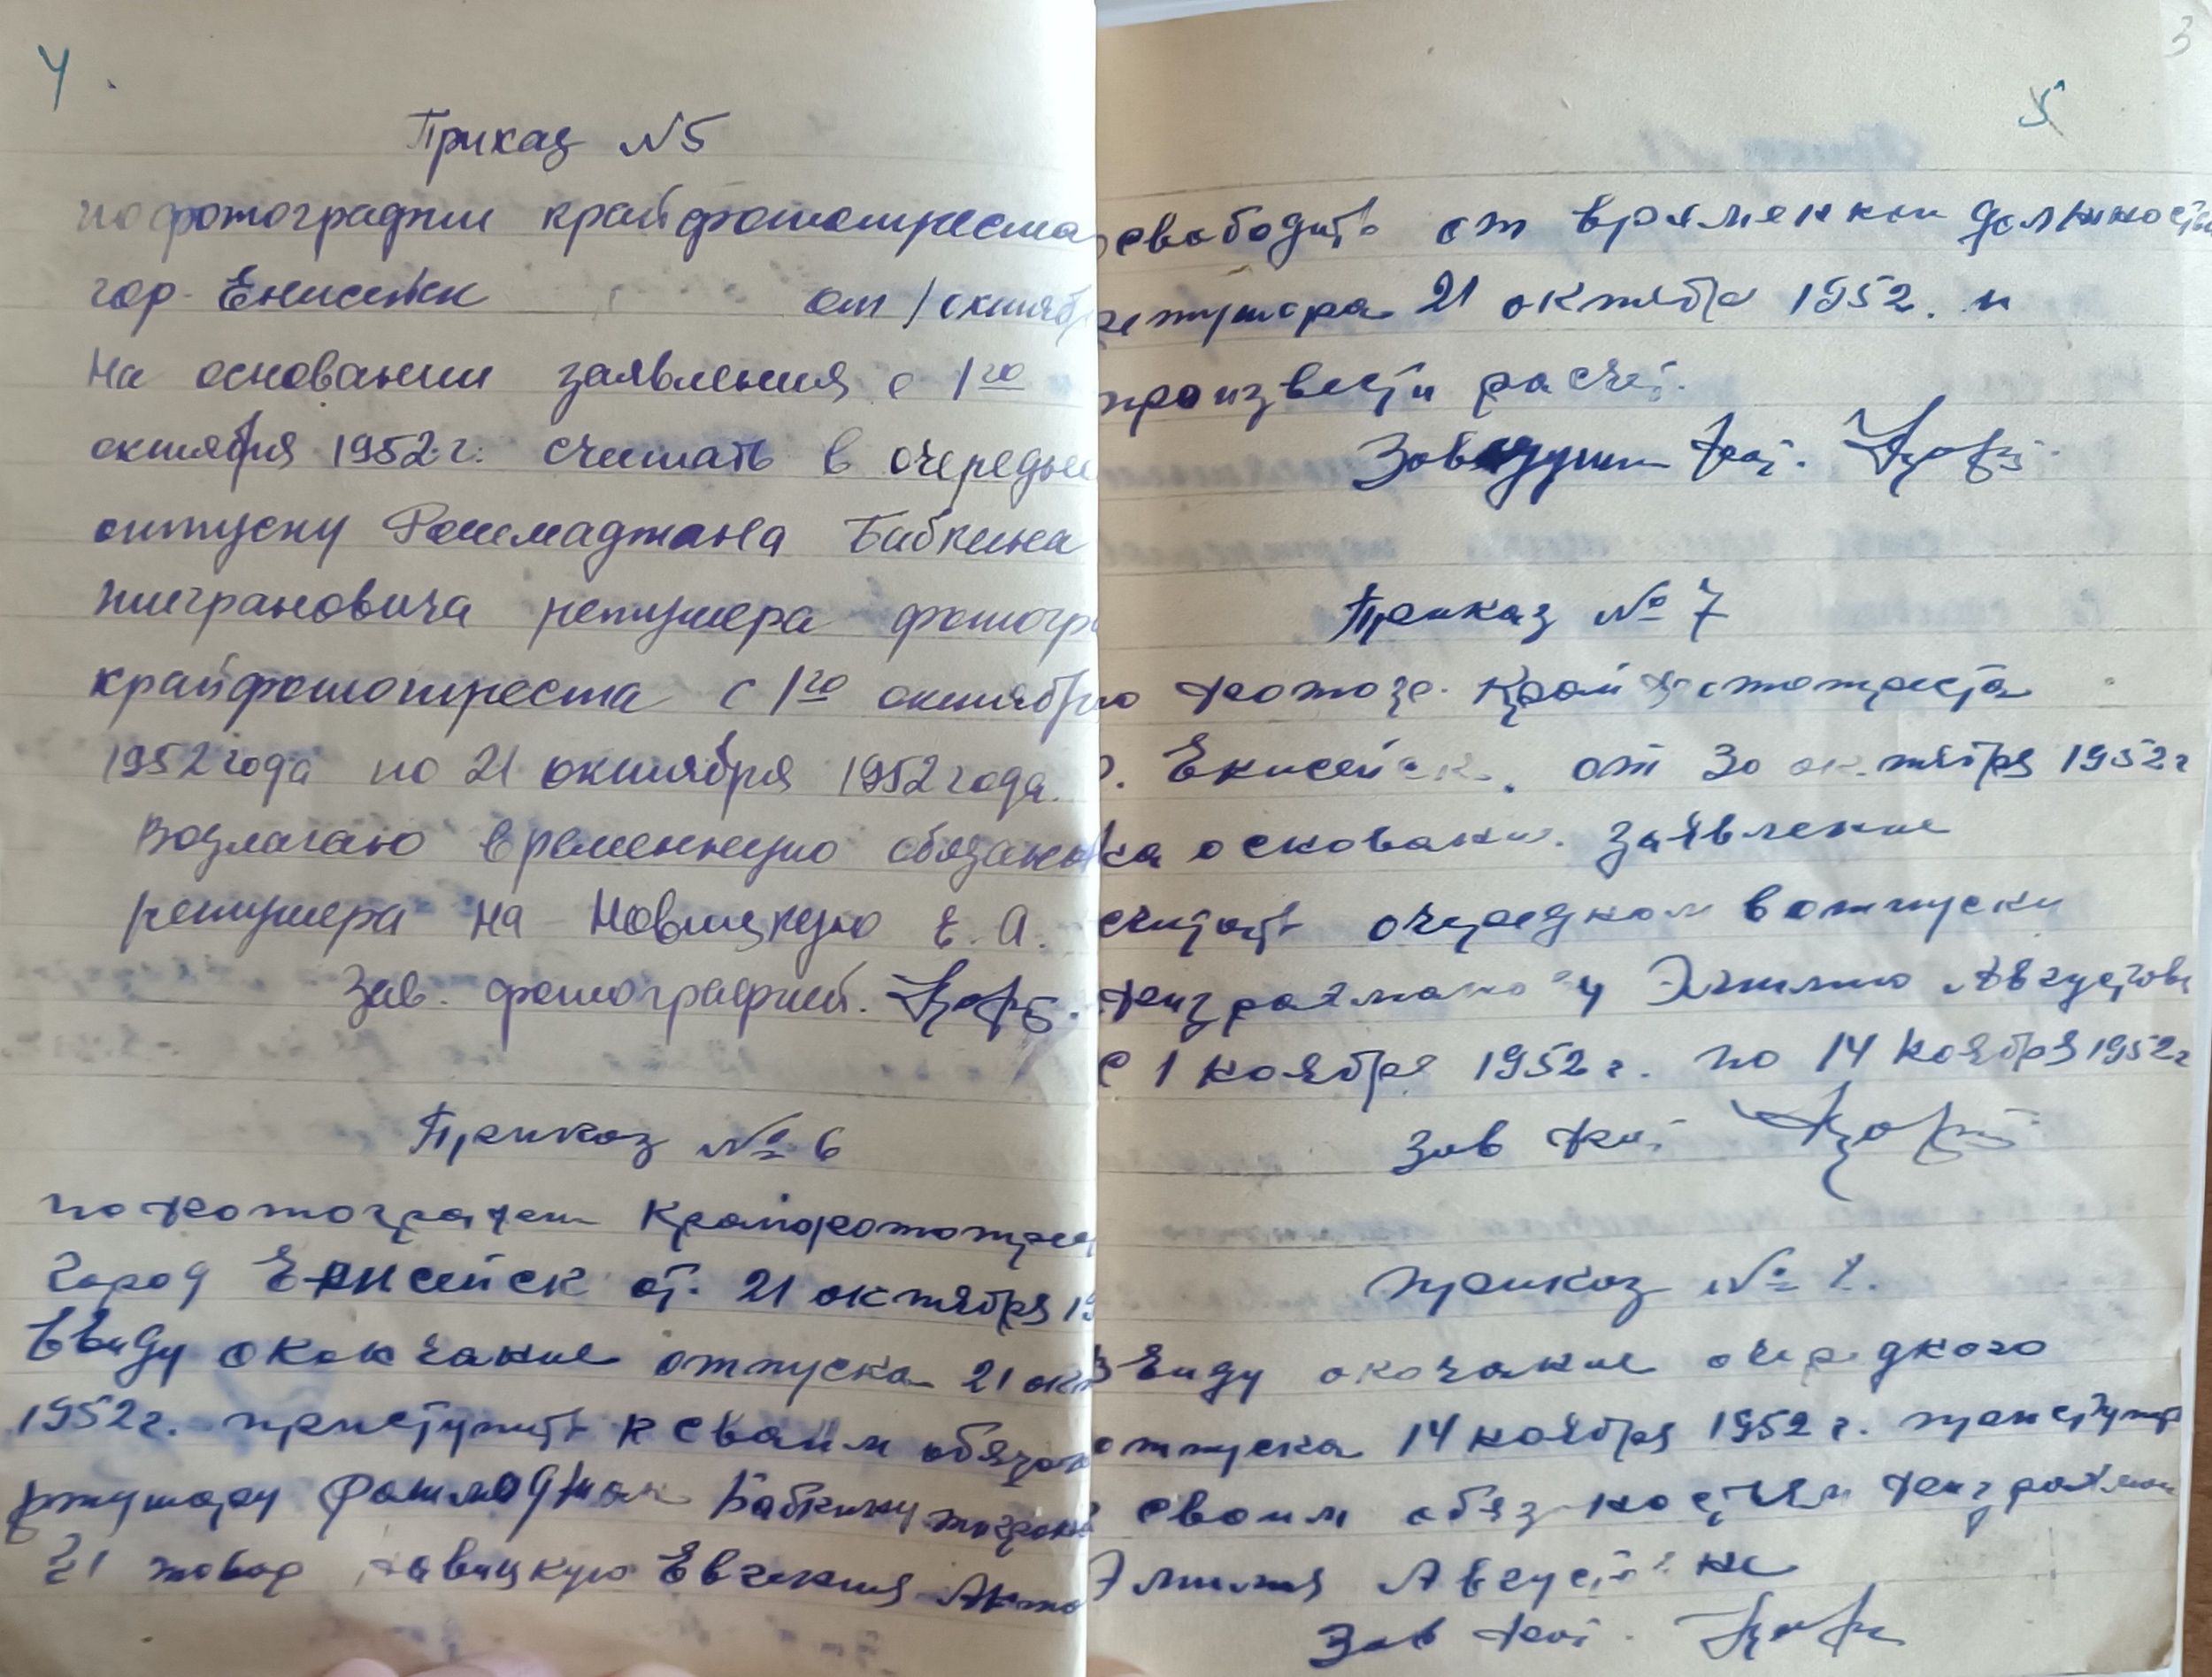 4
Приказ N5
по фотографии крайфототреста
гор. Енисейск от 1 октяб
На основании заявления с 1го
октября 1952.г. считать в очередн
отпуску Рошмаджана Бабкина
тиграновича ретушера фотогр
крайфототреста с 1го октября
1952 года по 21 октября 1952 года.
Возлагаю временную обязан
ретушера на Новицкую Е.А.
Зав. фотографией.
Приказ № 6
по фотографеи Крайфототрес
город Енисейск от. 21 октября 19
Ввиду окончание отпуска 21 ок
1952г. приступить к сваим обязан
ретушору Бабкину тигран
21 Евгения Анто
3
5
освободить от врямянкои должность
ретушора 21 октября 1952. и
произвести расчет.
Заведущи фот.
Приказ № 7
по фотогр. Край фототреста
г. Енисейск. от 30 октября 1952г
на основани. заявление
считат очередном в отпуски
Эмилию Августов
с 1 ноября 1952г. по 14 ноября 1952г
Зав фот
приказ № 8.
В виду окочание очередного
отпуска 14 ноября 1952г. приступит
своим обязаностям
Эмилия Августовне
Зав фот.